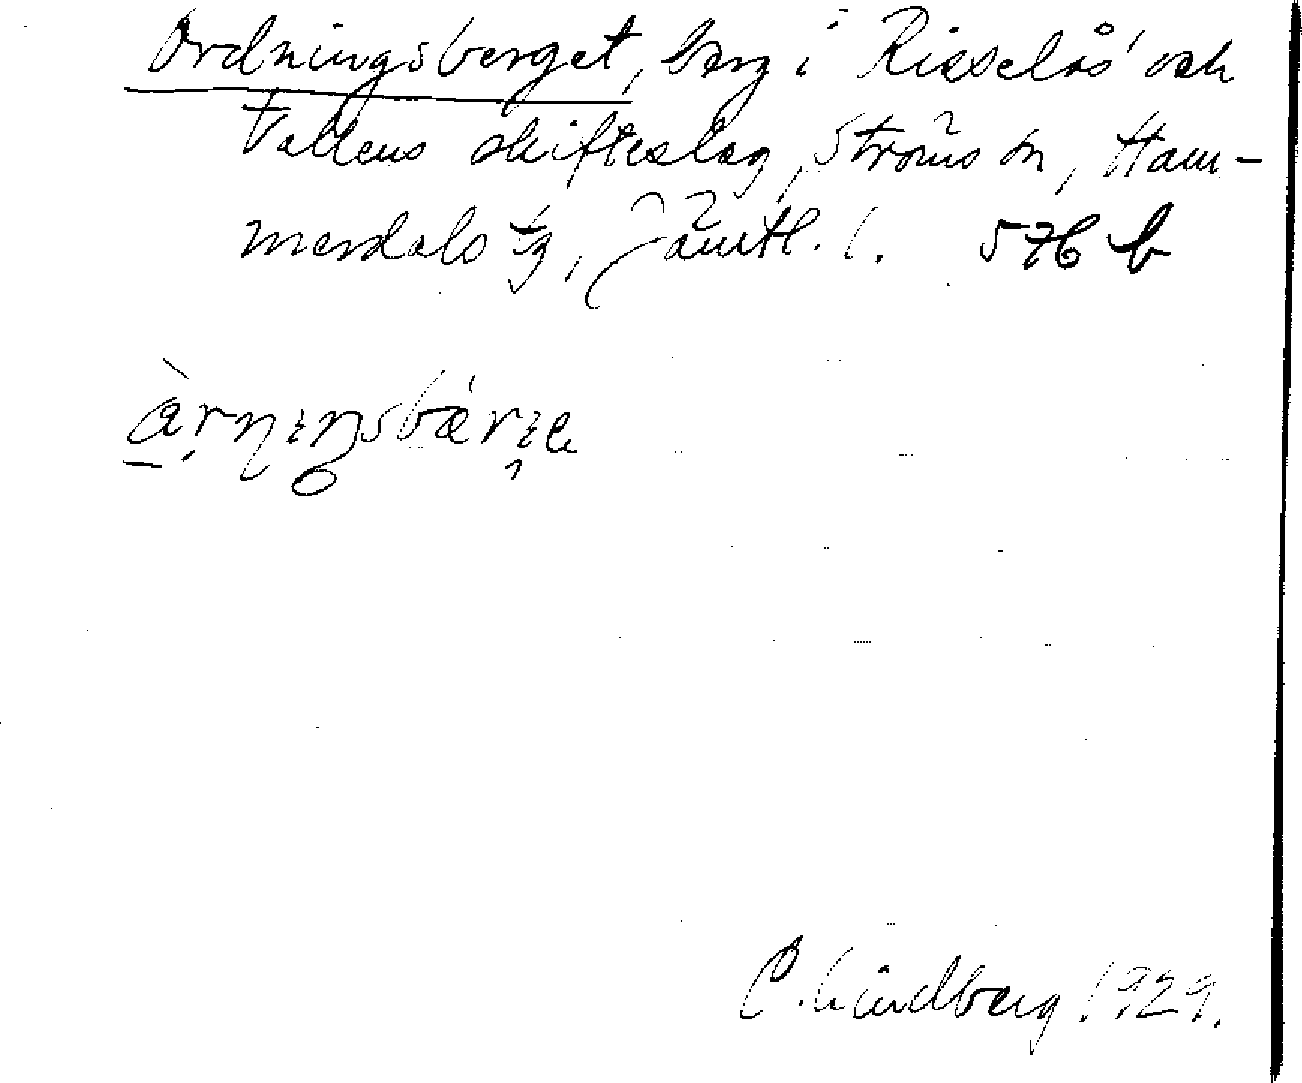 Ordningsberget, berg i Risselås och
Vallens skifteslag, Ströms sn, Ham-
merdals tg, Jämtl. l. 576 b
C. Lindberg 1929.